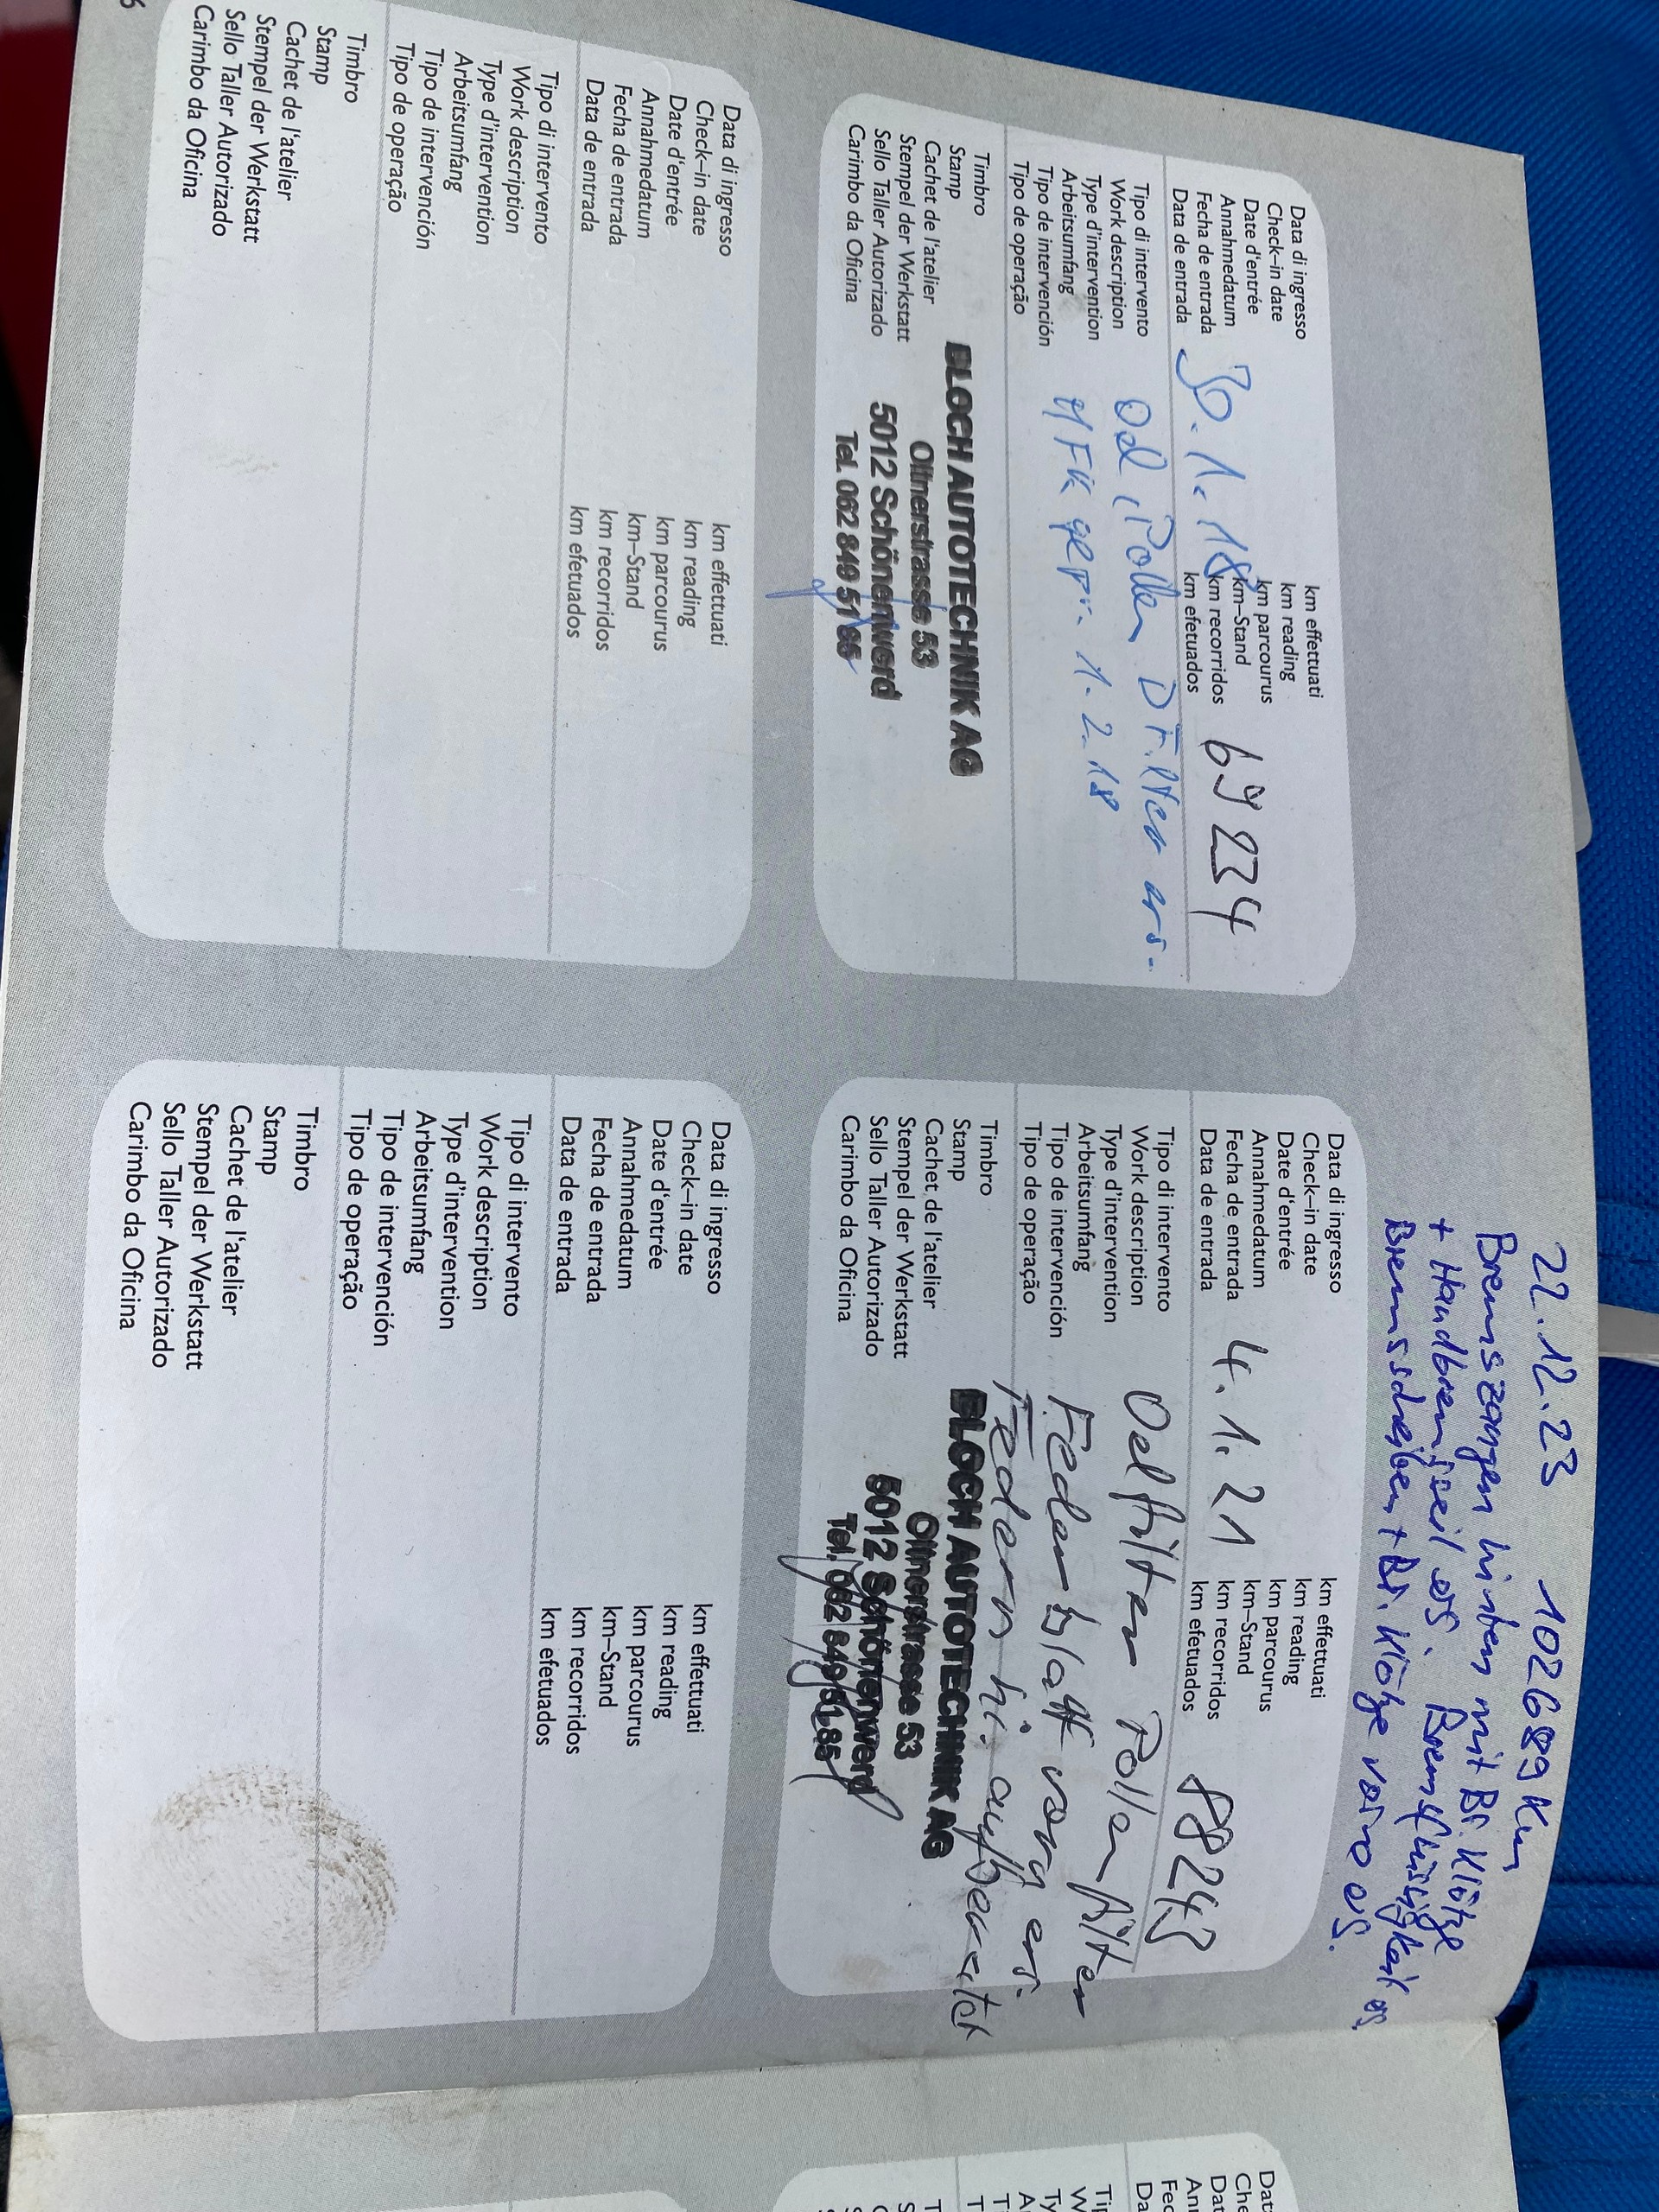 22.12.23 102689 Km
Bremszangen hinten mit Br. Klötze
+ Handbremsseil ers. Bremsflüssigkeit ers.
Bremsscheiben + Br. Klötze vorne ers.
Data di ingresso
Check–in date
Date d'entrée
Annahmedatum
Fecha de entrada
Data de entrada
30.1.18
km effettuati
km reading
km parcourus
km–Stand
km recorridos
km efetuados
69234
Tipo di intervento
Work description
Type d'intervention
Arbeitsumfang
Tipo de intervención
Tipo de operação
Oel, Pollen, D Filter ers.
MFK gepr. 1.2.18
Timbro
Stamp
Cachet de l'atelier
Stempel der Werkstatt
Sello Taller Autorizado
Carimbo da Oficina
BLOCH AUTOTECHNIK AG
Oltnerstrasse 53
5012 Schönenwerd
Tel. 062 849 51 85
Data di ingresso
Check–in date
Date d'entrée
Annahmedatum
Fecha de entrada
Data de entrada
4.1.21
km effettuati
km reading
km parcourus
km–Stand
km recorridos
km efetuados
88243
Tipo di intervento
Work description
Type d'intervention
Arbeitsumfang
Tipo de intervención
Tipo de operação
Oelfilter Pollenfilter
Federblatt vorn ers.
Federn hi.
Timbro
Stamp
Cachet de l'atelier
Stempel der Werkstatt
Sello Taller Autorizado
Carimbo da Oficina
BLOCH AUTOTECHNIK AG
Oltnerstrasse 53
5012 Schönenwerd
Tel. 062 849 51 85
Data di ingresso
Check–in date
Date d'entrée
Annahmedatum
Fecha de entrada
Data de entrada
km effettuati
km reading
km parcourus
km–Stand
km recorridos
km efetuados
Tipo di intervento
Work description
Type d'intervention
Arbeitsumfang
Tipo de intervención
Tipo de operação
Timbro
Stamp
Cachet de l'atelier
Stempel der Werkstatt
Sello Taller Autorizado
Carimbo da Oficina
Data di ingresso
Check–in date
Date d'entrée
Annahmedatum
Fecha de entrada
Data de entrada
km effettuati
km reading
km parcourus
km–Stand
km recorridos
km efetuados
Tipo di intervento
Work description
Type d'intervention
Arbeitsumfang
Tipo de intervención
Tipo de operação
Timbro
Stamp
Cachet de l'atelier
Stempel der Werkstatt
Sello Taller Autorizado
Carimbo da Oficina